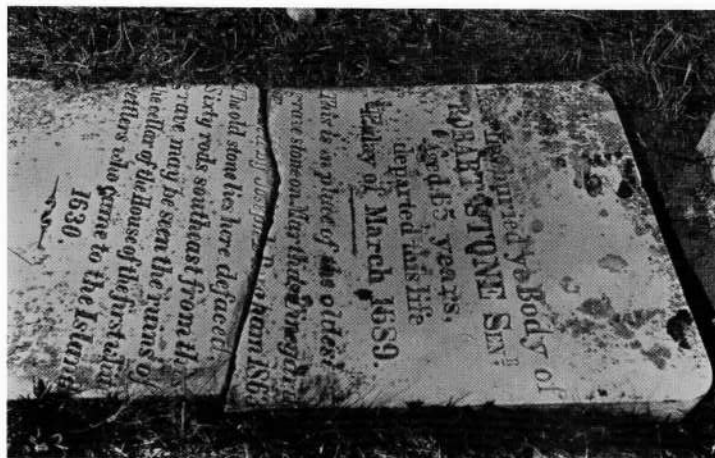 buried ye Body of
ROBART STONE SENR
Aged 65 years,
departed this life
day of March 1689.
This is a piece of the oldest
grave stone on Marthas
The old stone lies here defaced
Sixty rods southeast from th
grave may be seen the ruins of
the cellar of the House of the first whit
settlers who came to the Island
1630.